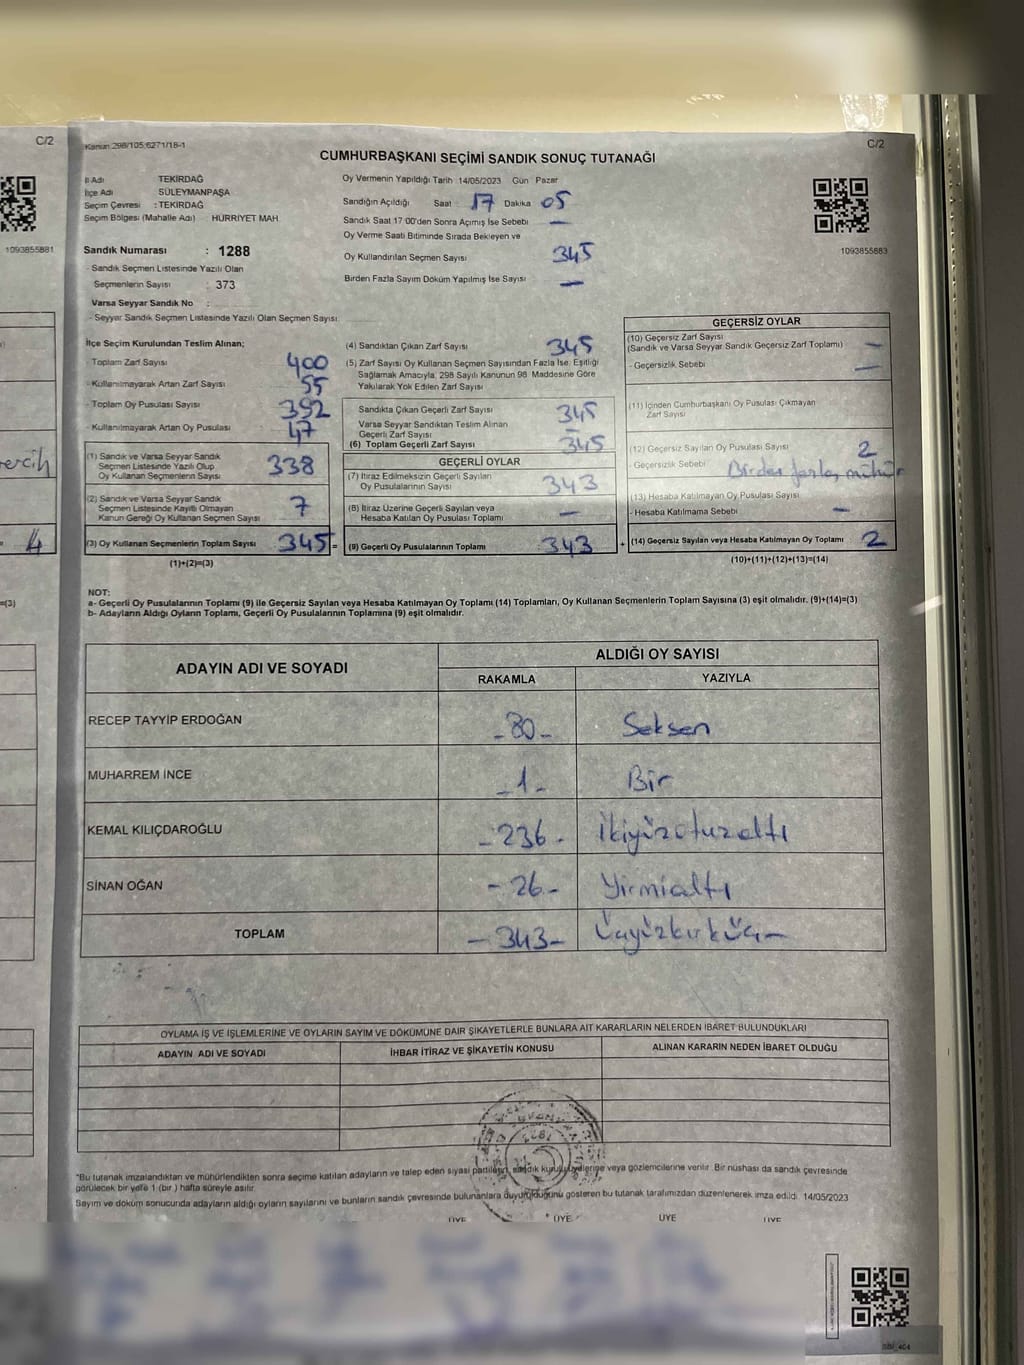 C/2
Kanun 298/105;6271/18-1
C/2
CUMHURBAŞKANI SEÇİMİ SANDIK SONUÇ TUTANAĞI
İl Adı TEKİRDAĞ
İlçe Adı SÜLEYMANPAŞA
Seçim Çevresi : TEKİRDAĞ
Seçim Bölgesi (Mahalle Adı) HÜRRİYET MAH
Sandık Numarası : 1288
- Sandık Seçmen Listesinde Yazılı Olan
Seçmenlerin Sayısı : 373
Varsa Seyyar Sandık No :
- Seyyar Sandık Seçmen Listesinde Yazılı Olan Seçmen Sayısı:
Oy Vermenin Yapıldığı Tarih 14/05/2023 Gün Pazar
Sandığın Açıldığı Saat : 17 Dakika 05
Sandık Saat 17:00'den Sonra Açımış İse Sebebi —
Oy Verme Saati Bitiminde Sırada Bekleyen ve
Oy Kullandırılan Seçmen Sayısı 345
Birden Fazla Sayım Döküm Yapılmış İse Sayısı —
1093855881
1093855883
İlçe Seçim Kurulundan Teslim Alınan;
- Toplam Zarf Sayısı 400
- Kullanılmayarak Artan Zarf Sayısı 55
- Toplam Oy Pusulası Sayısı 392
- Kullanılmayarak Artan Oy Pusulası 47
(1) Sandık ve Varsa Seyyar Sandık
Seçmen Listesinde Yazılı Olup
Oy Kullanan Seçmenlerin Sayısı 338
(2) Sandık ve Varsa Seyyar Sandık
Seçmen Listesinde Kayıtlı Olmayan
Kanun Gereği Oy Kullanan Seçmen Sayısı 7
(3) Oy Kullanan Seçmenlerin Toplam Sayısı 345 =
(1)+(2)=(3)
(4) Sandıktan Çıkan Zarf Sayısı 345
(5) Zarf Sayısı Oy Kullanan Seçmen Sayısından Fazla İse, Eşitliği
Sağlamak Amacıyla, 298 Sayılı Kanunun 98. Maddesine Göre
Yakılarak Yok Edilen Zarf Sayısı
Sandıkta Çıkan Geçerli Zarf Sayısı 345
Varsa Seyyar Sandıktan Teslim Alınan
Geçerli Zarf Sayısı –
(6) Toplam Geçerli Zarf Sayısı 345
GEÇERLİ OYLAR
(7) İtiraz Edilmeksizin Geçerli Sayılan
Oy Pusulalarının Sayısı 343
(8) İtiraz Üzerine Geçerli Sayılan veya
Hesaba Katılan Oy Pusulası Toplamı —
(9) Geçerli Oy Pusulalarının Toplamı 343 +
GEÇERSİZ OYLAR
(10) Geçersiz Zarf Sayısı
(Sandık ve Varsa Seyyar Sandık Geçersiz Zarf Toplamı) —
- Geçersizlik Sebebi —
(11) İçinden Cumhurbaşkanı Oy Pusulası Çıkmayan
Zarf Sayısı
(12) Geçersiz Sayılan Oy Pusulası Sayısı 2
- Geçersizlik Sebebi Birden fazla mühür
(13) Hesaba Katılmayan Oy Pusulası Sayısı
- Hesaba Katılmama Sebebi —
(14) Geçersiz Sayılan veya Hesaba Katılmayan Oy Toplamı 2
(10)+(11)+(12)+(13)=(14)
4
=(3)
NOT:
a- Geçerli Oy Pusulalarının Toplamı (9) ile Geçersiz Sayılan veya Hesaba Katılmayan Oy Toplamı (14) Toplamları, Oy Kullanan Seçmenlerin Toplam Sayısına (3) eşit olmalıdır. (9)+(14)=(3)
b- Adayların Aldığı Oyların Toplamı, Geçerli Oy Pusulalarının Toplamına (9) eşit olmalıdır.
ADAYIN ADI VE SOYADI ALDIĞI OY SAYISI
RAKAMLA YAZIYLA
RECEP TAYYİP ERDOĞAN -80- Seksen
MUHARREM İNCE -1- Bir
KEMAL KILIÇDAROĞLU -236- İkiyüzotuzaltı
SİNAN OĞAN -26- Yirmialtı
TOPLAM -343- Üçyüzkırküç-
OYLAMA İŞ VE İŞLEMLERİNE VE OYLARIN SAYIM VE DÖKÜMÜNE DAİR ŞİKAYETLERLE BUNLARA AİT KARARLARIN NELERDEN İBARET BULUNDUKLARI
ADAYIN ADI VE SOYADI İHBAR İTİRAZ VE ŞİKAYETİN KONUSU ALINAN KARARIN NEDEN İBARET OLDUĞU
*Bu tutanak imzalandıktan ve mühürlendikten sonra seçime katılan adayların ve talep eden siyasi partilerin, sandık kurulu üyelerine veya gözlemcilerine verilir. Bir nüshası da sandık çevresinde
görülecek bir yere 1 (bir) hafta süreyle asılır.
Sayım ve döküm sonucunda adayların aldığı oyların sayılarını ve bunların sandık çevresinde bulunanlara duyurulduğunu gösteren bu tutanak tarafımızdan düzenlenerek imza edildi. 14/05/2023
ÜYE ÜYE ÜYE ÜYE